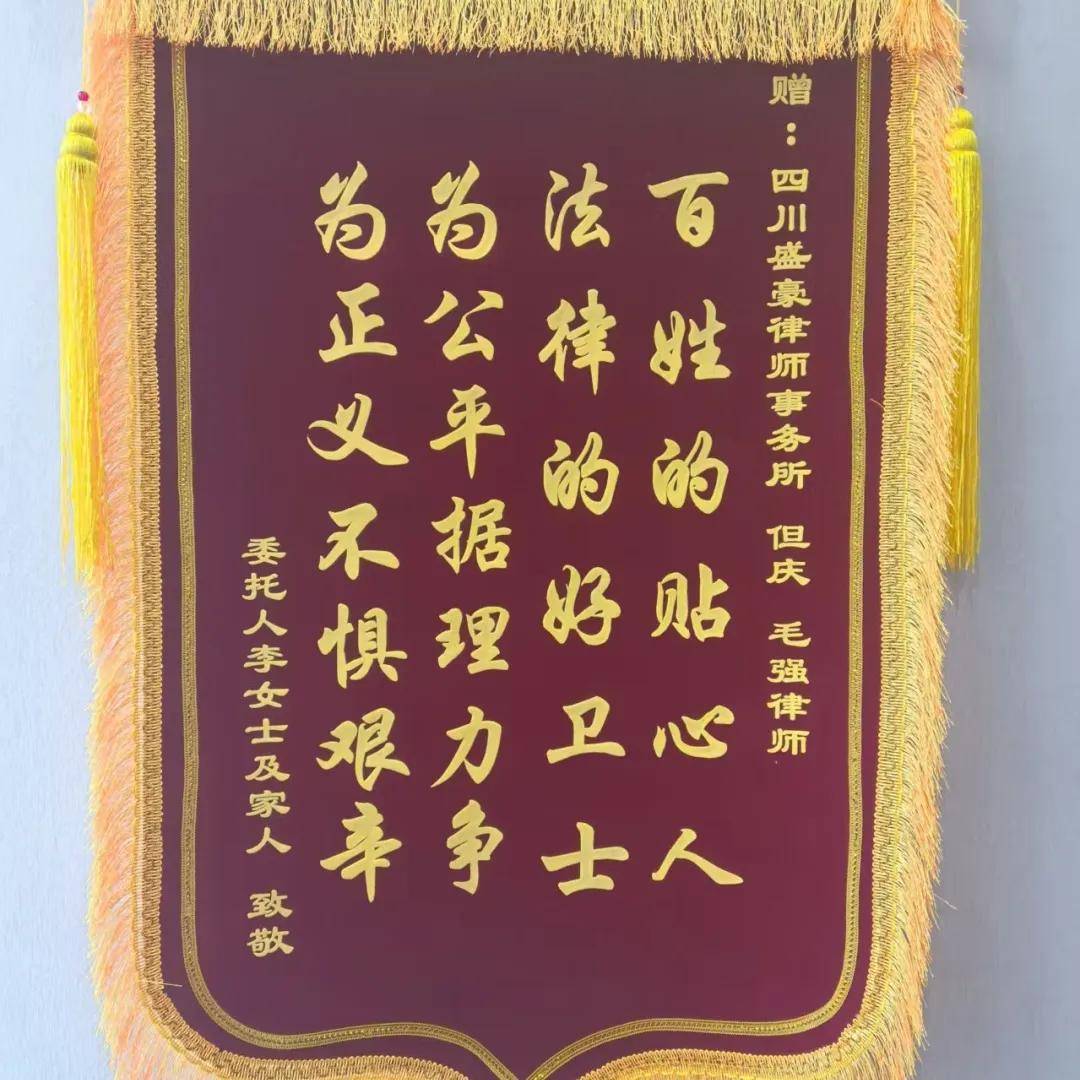 赠：四川盛豪律师事务所 但庆 毛强律师
百姓的贴心人
法律的好卫士
为公平据理力争
为正义不惧艰辛
委托人李女士及家人 致敬